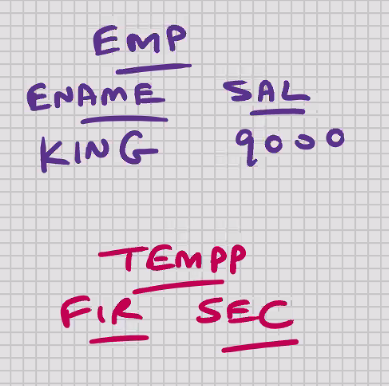 EMP
ENAME SAL
KING 9000
TEMPP
FIR SEC